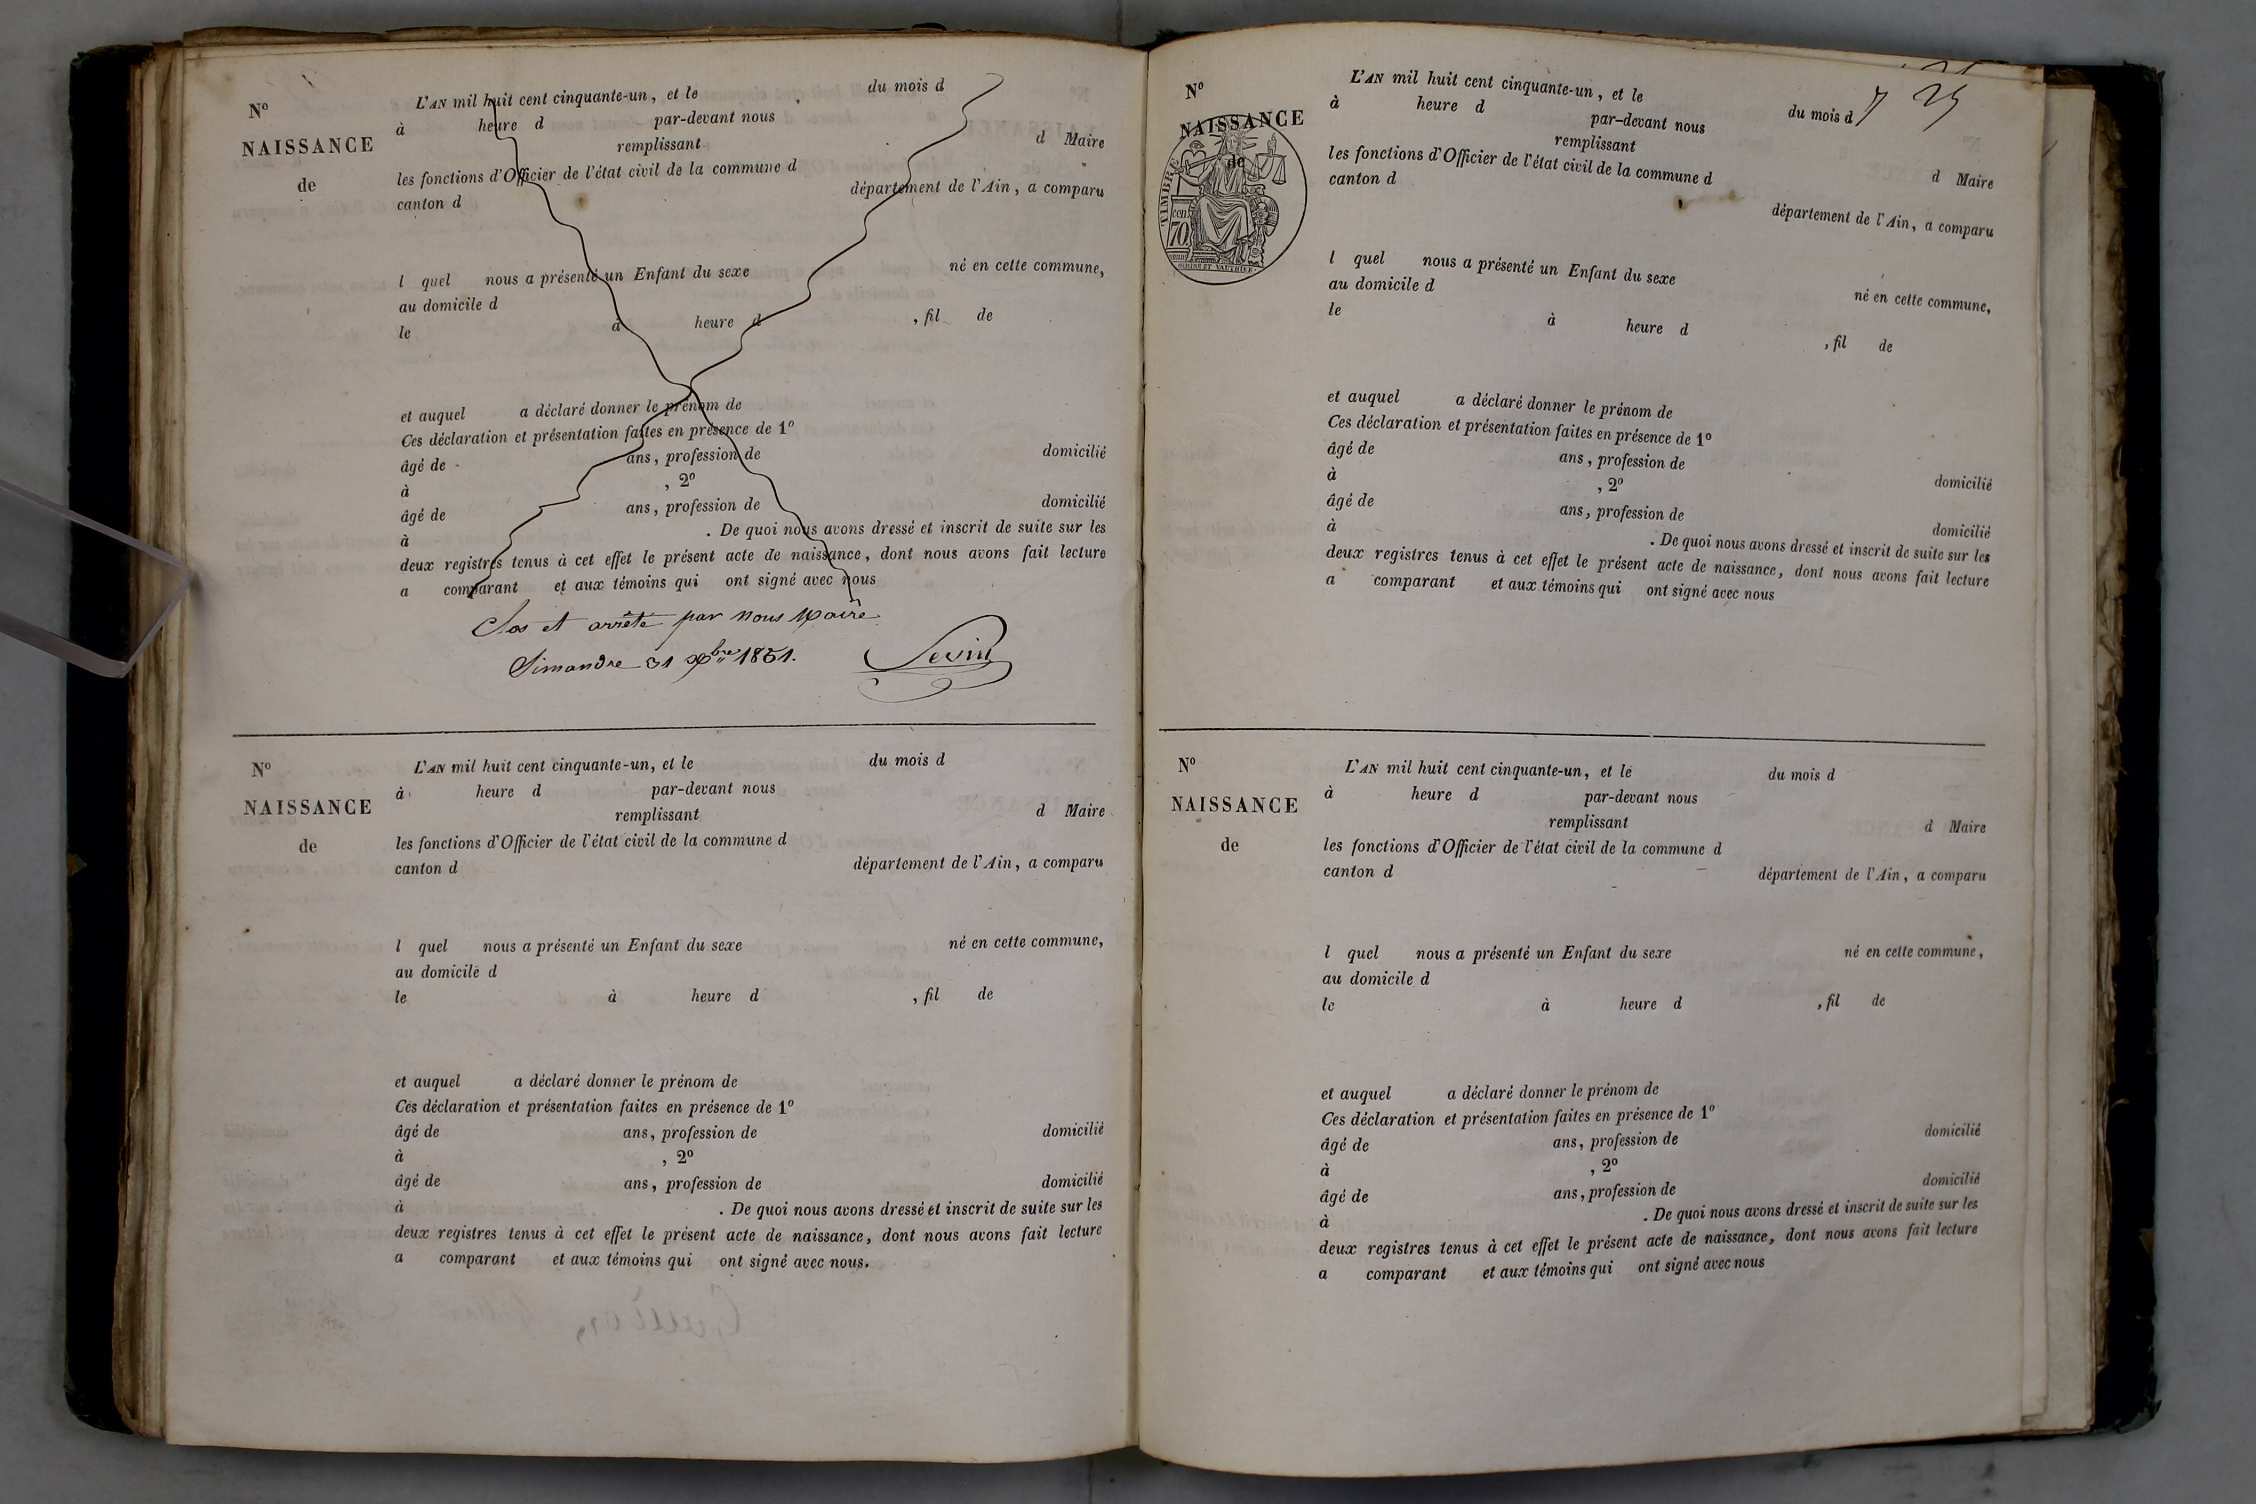 Nº
NAISSANCE
de
L'AN mil huit cent cinquante-un, et le du mois d
à heure d par-devant nous
remplissant d Maire
les fonctions d'Officier de l'état civil de la commune d
canton d département de l'Ain, a comparu
l quel nous a présenté un Enfant du sexe né en cette commune,
au domicile d
le à heure d , fil de
et auquel a déclaré donner le prénom de
Ces déclaration et présentation faites en présence de 1º
âgé de ans, profession de domicilié
à , 2º
âgé de ans, profession de domicilié
à . De quoi nous avons dressé et inscrit de suite sur les
deux registres tenus à cet effet le présent acte de naissance, dont nous avons fait lecture
a comparant et aux témoins qui ont signé avec nous
Clos et arrêté par nous Maire
Simandre 31 Xbre 1851.
Nº
NAISSANCE
de
L'AN mil huit cent cinquante-un, et le du mois d
à heure d par-devant nous
remplissant d Maire
les fonctions d'Officier de l'état civil de la commune d
canton d département de l'Ain, a comparu
l quel nous a présenté un Enfant du sexe né en cette commune,
au domicile d
le à heure d , fil de
et auquel a déclaré donner le prénom de
Ces déclaration et présentation faites en présence de 1º
âgé de ans, profession de domicilié
à , 2º
âgé de ans, profession de domicilié
à . De quoi nous avons dressé et inscrit de suite sur les
deux registres tenus à cet effet le présent acte de naissance, dont nous avons fait lecture
a comparant et aux témoins qui ont signé avec nous.
Nº
NAISSANCE
de
TIMBRE
cen.
70
L'AN mil huit cent cinquante-un, et le du mois d
à heure d par-devant nous
remplissant d Maire
les fonctions d'Officier de l'état civil de la commune d
canton d département de l'Ain, a comparu
l quel nous a présenté un Enfant du sexe né en cette commune,
au domicile d
le à heure d , fil de
et auquel a déclaré donner le prénom de
Ces déclaration et présentation faites en présence de 1º
âgé de ans, profession de domicilié
à , 2º
âgé de ans, profession de domicilié
à . De quoi nous avons dressé et inscrit de suite sur les
deux registres tenus à cet effet le présent acte de naissance, dont nous avons fait lecture
a comparant et aux témoins qui ont signé avec nous
Nº
NAISSANCE
de
L'AN mil huit cent cinquante-un, et le du mois d
à heure d par-devant nous
remplissant d Maire
les fonctions d'Officier de l'état civil de la commune d
canton d département de l'Ain, a comparu
l quel nous a présenté un Enfant du sexe né en cette commune,
au domicile d
le à heure d , fil de
et auquel a déclaré donner le prénom de
Ces déclaration et présentation faites en présence de 1º
âgé de ans, profession de domicilié
à , 2º
âgé de ans, profession de domicilié
à . De quoi nous avons dressé et inscrit de suite sur les
deux registres tenus à cet effet le présent acte de naissance, dont nous avons fait lecture
a comparant et aux témoins qui ont signé avec nous